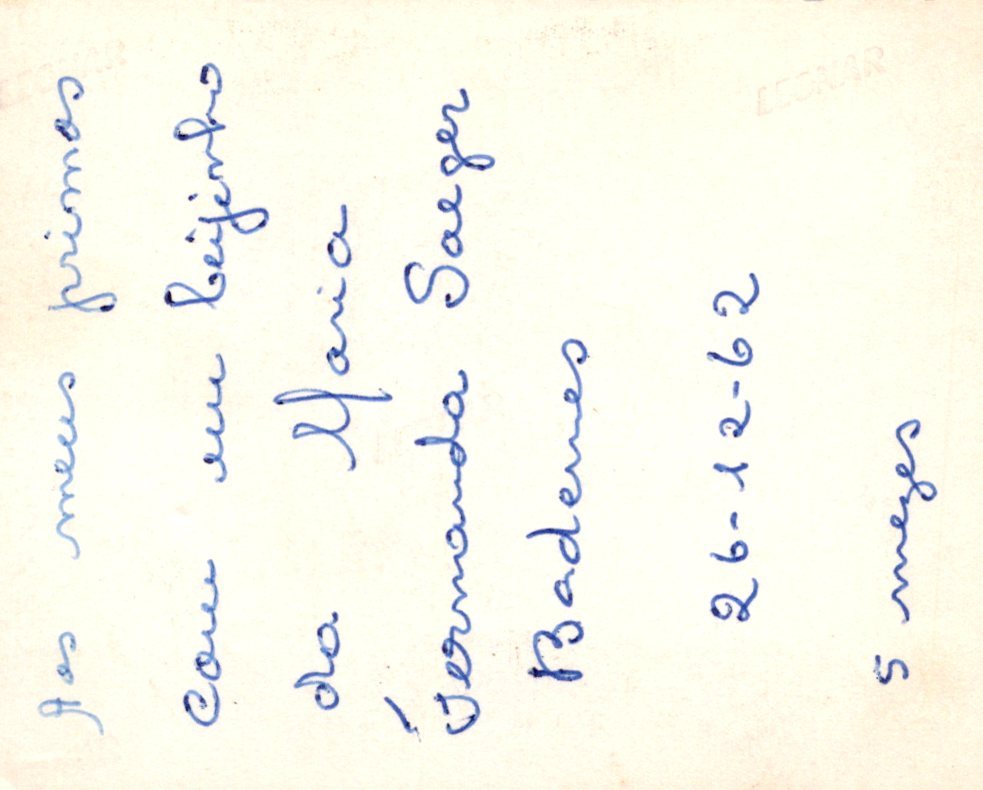 Aos meus primos
com um beijinho
da Maria
Fernanda Saeger
Badenes
26-12-62
5 mezes